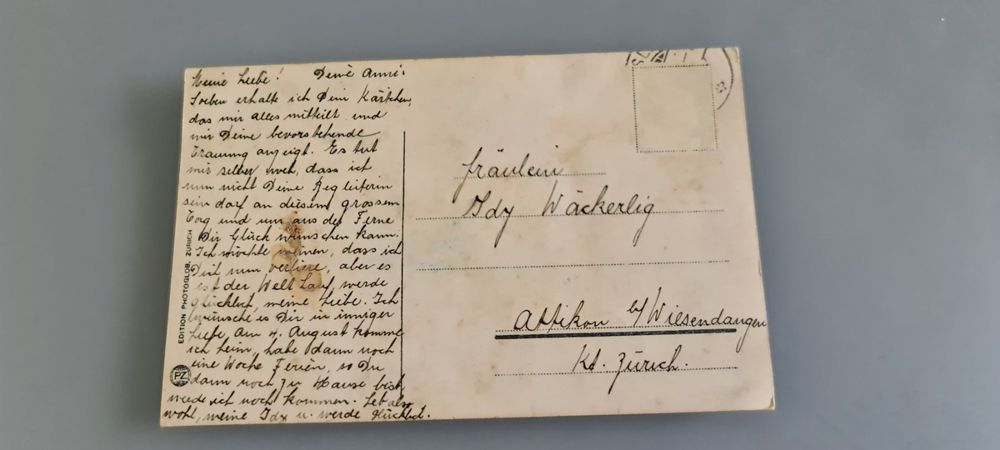 Meine Liebe! Deine Anni.
Soeben erhalte ich Dein Kärtchen,
das mir alles mitteilt und
mir Deine bevorstehende
Trauung anzeigt. Es tut
mir selber weh, dass ich
nun nicht Deine Begleiterin
sein darf an diesem grossem
Tag und nur aus der Ferne
Dir Glück wünschen kann.
Ich möchte weinen, dass ich
Dich nun verliere, aber es
ist der Welt Lauf, werde
glücklich, meine Liebe. Ich
wünsche es Dir in inniger
Liebe. Am 4. August komme
ich heim, habe dann noch
eine Woche Ferien, so Du
dann noch zu Hause bist
werde ich noch kommen. Leb also
wohl, meine Idy u. werde glücklich.
EDITION PHOTOGLOB, ZÜRICH
PZ
Fräulein
Idy Wäckerlig
Attikon b/Wiesendangen
Kt. Zürich.